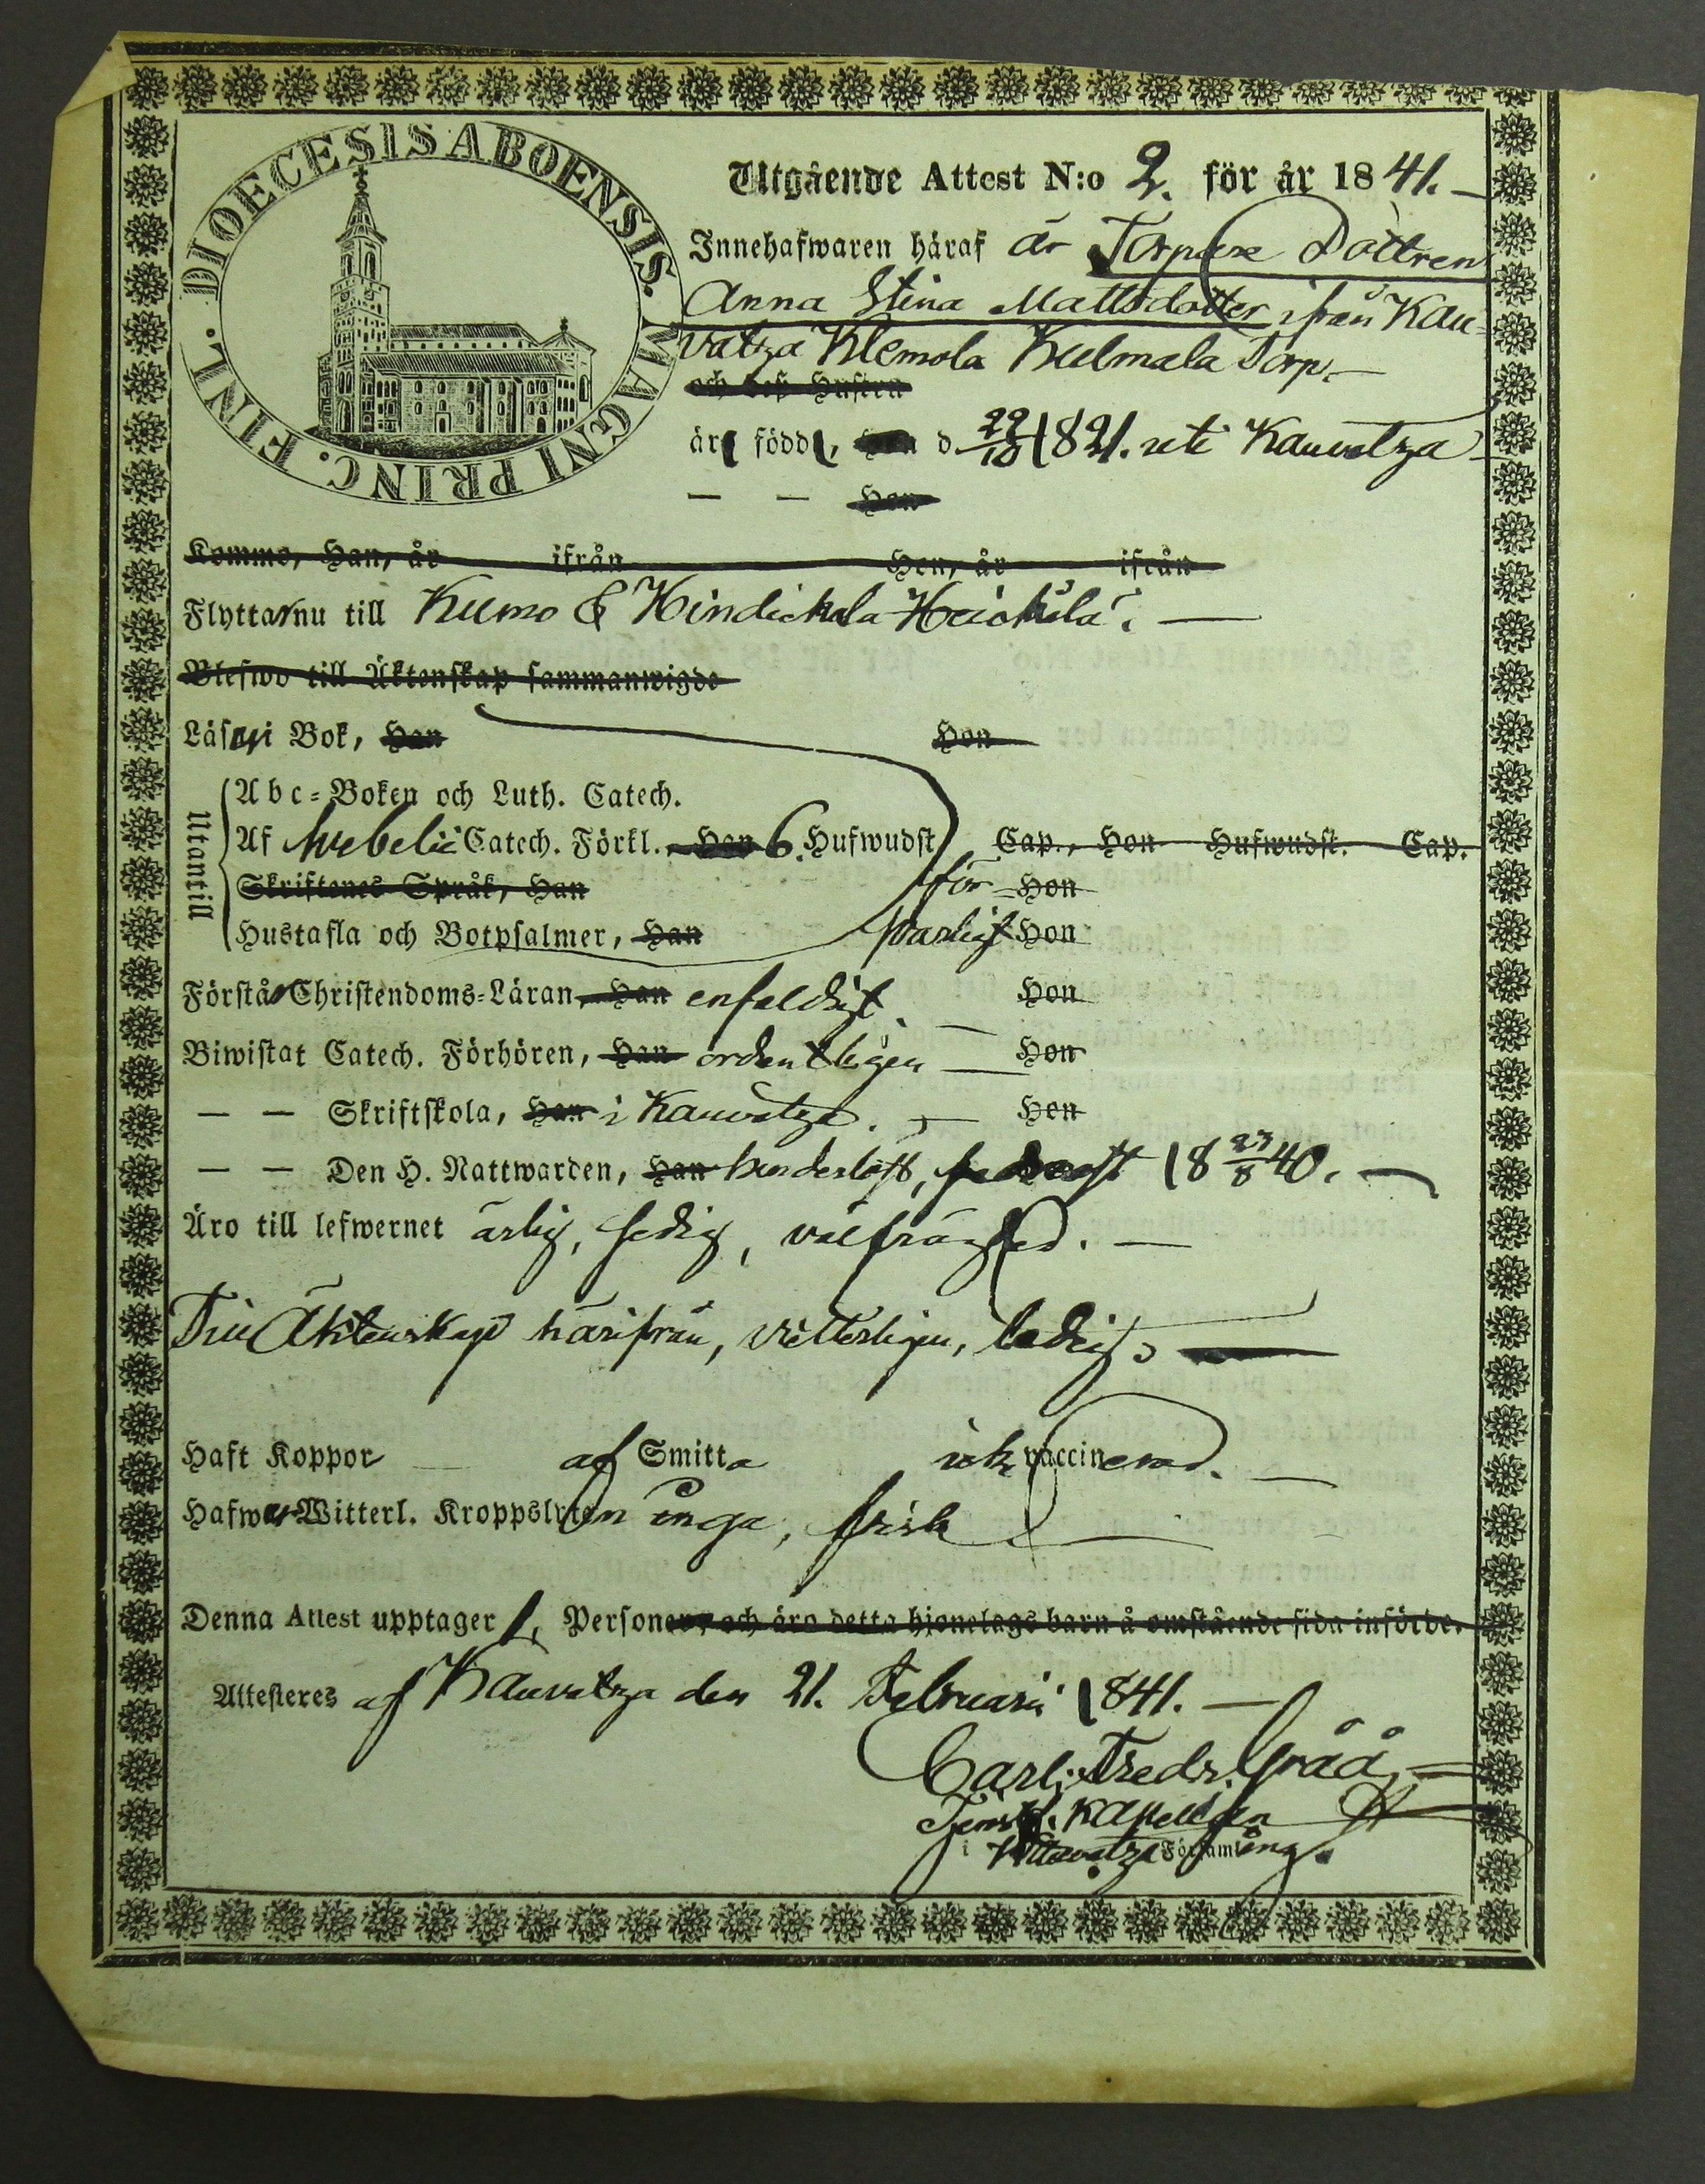 DIOECESIS ABOENSIS. MAGNI PRINC. FINL.
Utgående Attest N:o 2. för år 1841.
Innehafwaren häraf är Torpare Dottren
Anna Stina Mattsdotter ifrån Kau-
vatza Klemola Kulmala Torp.
och deß Hustru
är född, d 22/10 1821. uti Kauvatza
— — Hon
Komne, Han, år ifrån Hon, år ifrån
Flyttar nu till Kumo & Hindickala Heickilä.
Blefwo till Äktenskap sammanwigde
Läser i Bok, Han Hon
Utantill
Abc-Boken och Luth. Catech.
Af Svebelii Catech. Förkl., Han 6. Hufwudst. Cap., Hon Hufwudst. Cap.
Skriftenes Språk, Han för- Hon
Hustafla och Botpsalmer, Han svarligt Hon
Förstår Christendoms-Läran, Han enfaldigt Hon
Biwistat Catech. Förhören, Han ordentligen Hon
— — Skriftskola, Han i Kauvatza. Hon
— — Den H. Nattwarden, Han hinderlöst, sednast 18 23/8 40.
Äro till lefwernet ärlig, sedig, välfrägdad.
Till Äktenskap härifrån, vetterligen, ledig.
Haft Koppor af Smitta ick vaccinerad.
Hafwer Witterl. Kroppslyten inga, frisk
Denna Attest upptager 1, Personer, och äro detta hjonelags barn å omstående sida införde.
Attesteres af Kauvatza den 21. Februarii 1841.
Carl Fredr. Gråå
Tjenstg. Kapellan
i Kauvatza Församling.